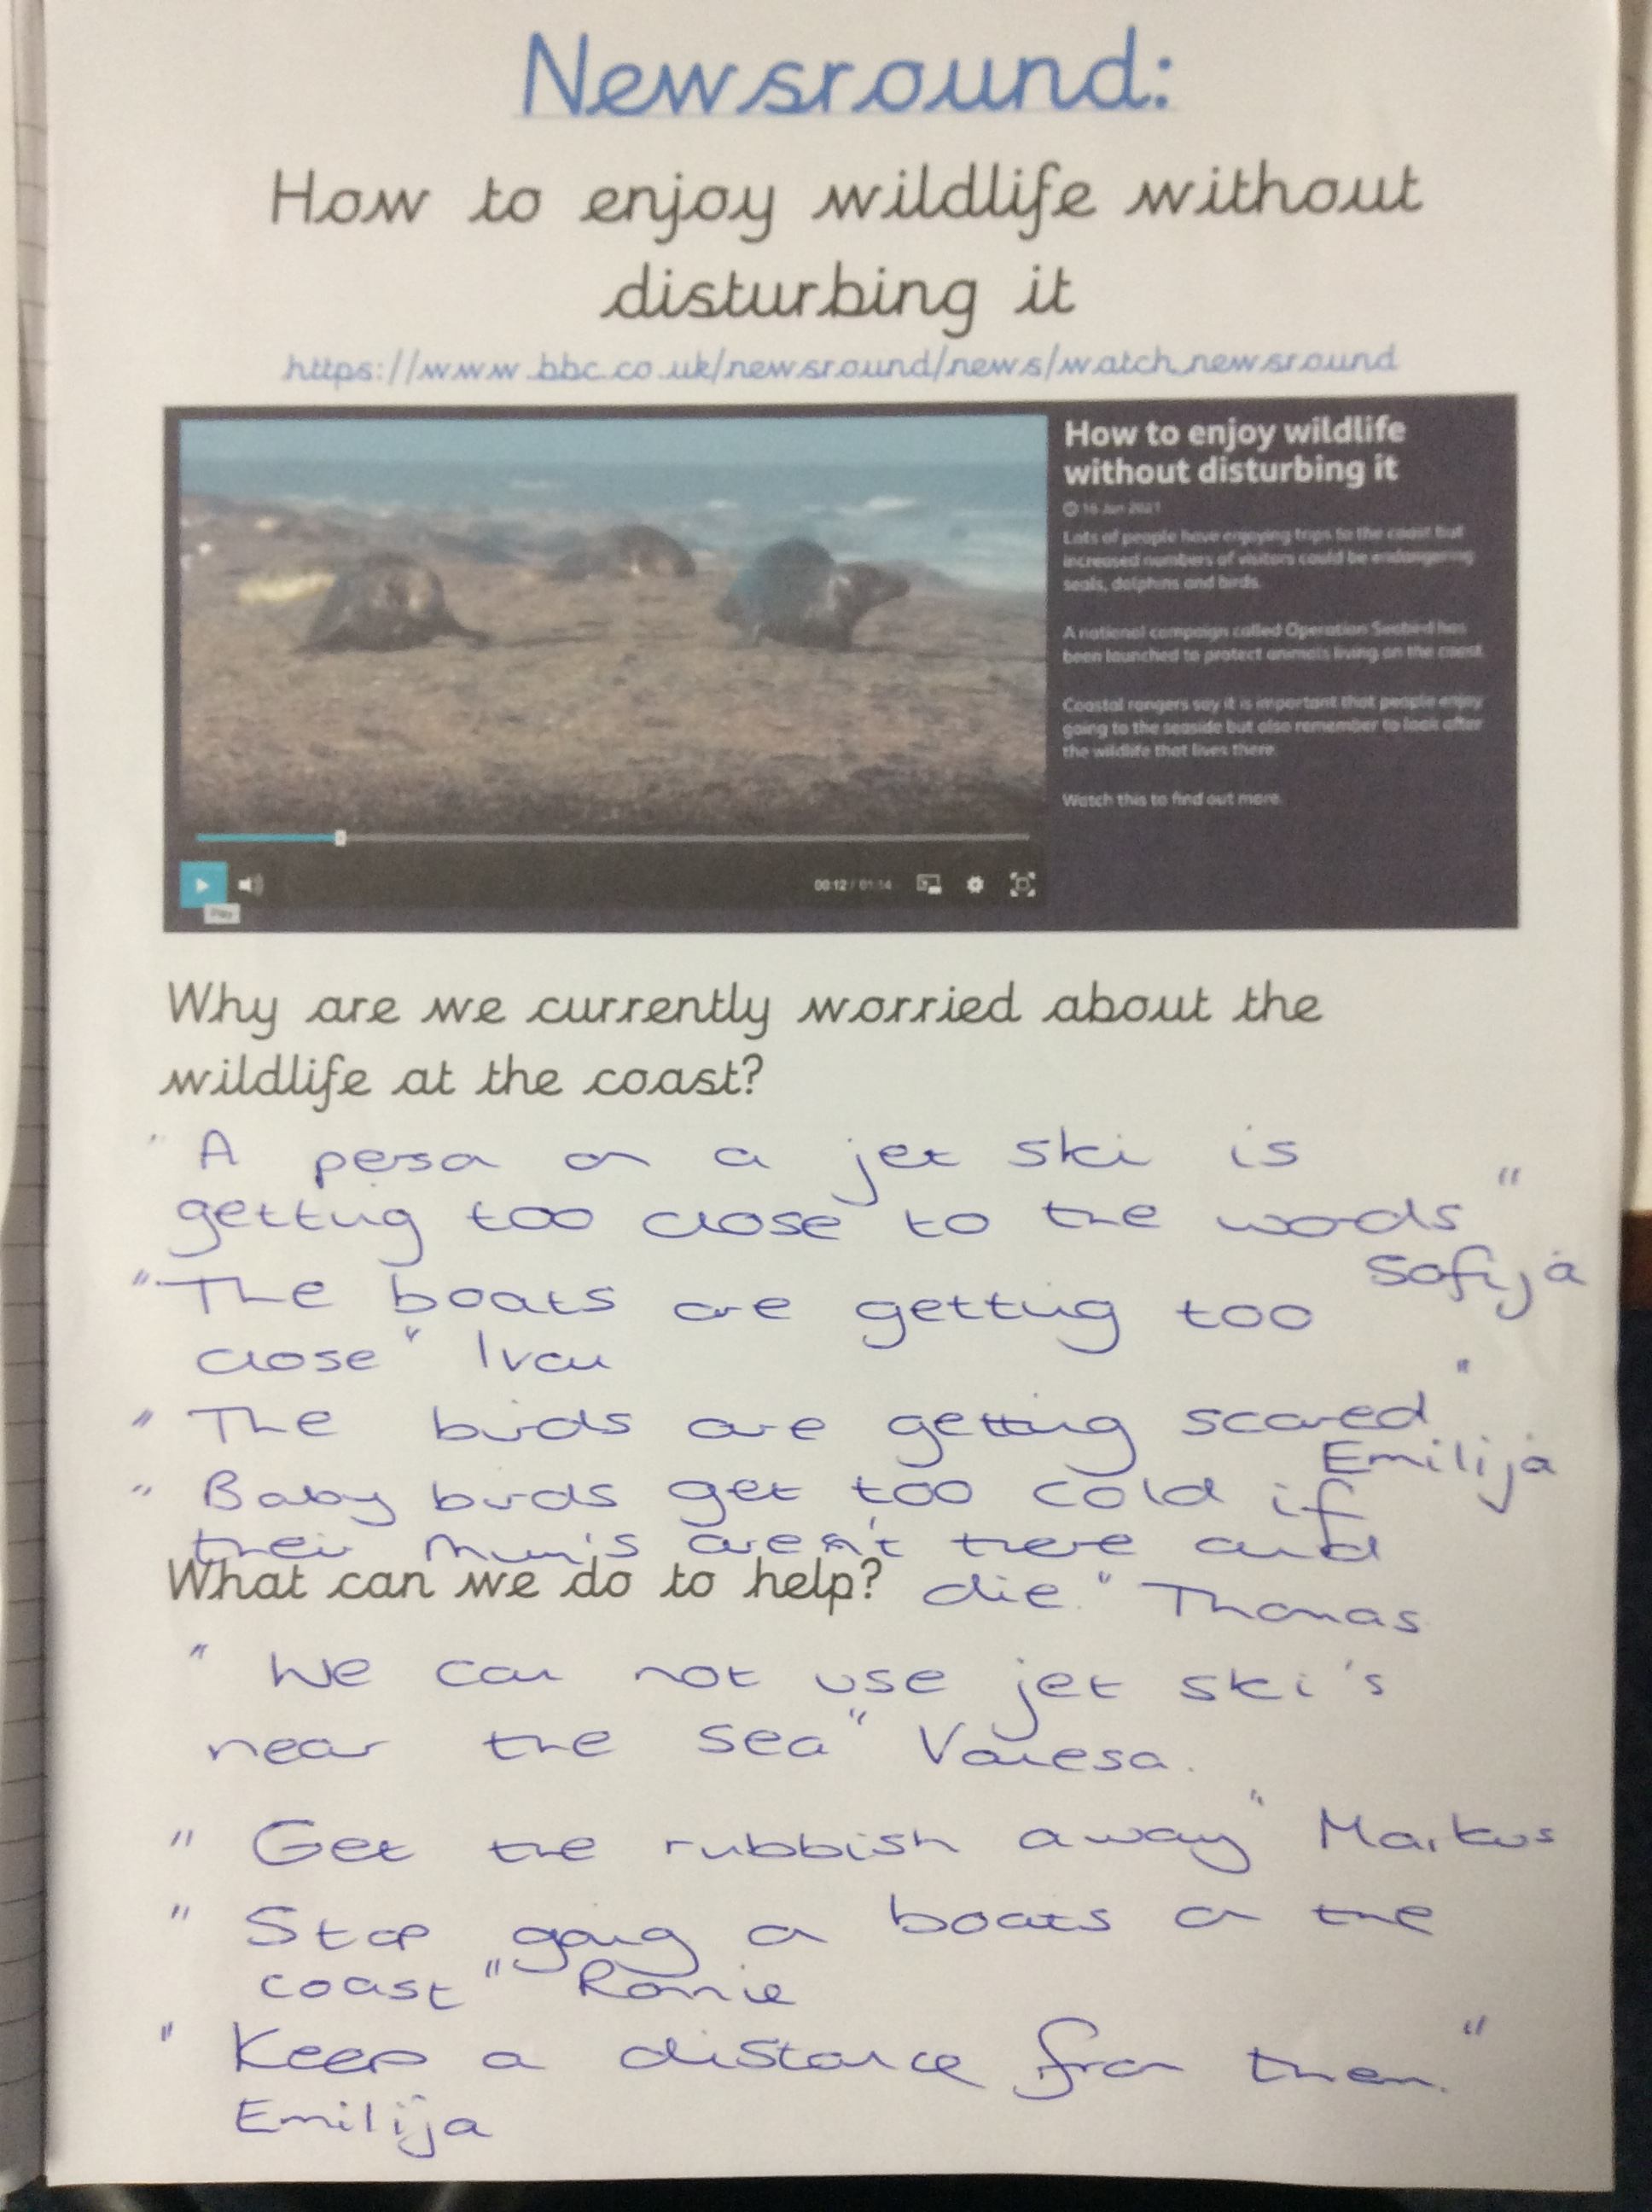 Newsround:
How to enjoy wildlife without
disturbing it
https://www.bbc.co.uk/newsround/news/watch_newsround
How to enjoy wildlife
without disturbing it
16 Jun 2021
Lots of people have enjoying trips to the coast but
increased numbers of visitors could be endangering
seals, dolphins and birds.
A national campaign called Operation Seabird has
been launched to protect animals living on the coast.
Coastal rangers say it is important that people enjoy
going to the seaside but also remember to look after
the wildlife that lives there.
Watch this to find out more.
00:12 / 01:14
Play
Why are we currently worried about the
wildlife at the coast?
"A person on a jet ski is
getting too close to the "
Sofija
"The boats are getting too
close" Ivan
"The birds are getting scared"
Emilija
"Baby birds get too cold if
their mum's aren't there and
die." Thomas
What can we do to help?
"We can not use jet ski's
near the sea" Vanesa.
"Get the rubbish away" Markus
"Stop going on boats on the
coast" Ronnie
"Keep a distance from them."
Emilija